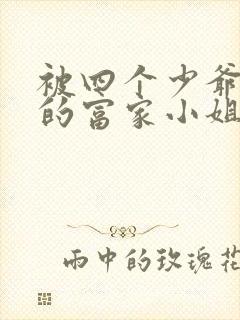 被四个少爷
的富家小姐
雨中的玫瑰花